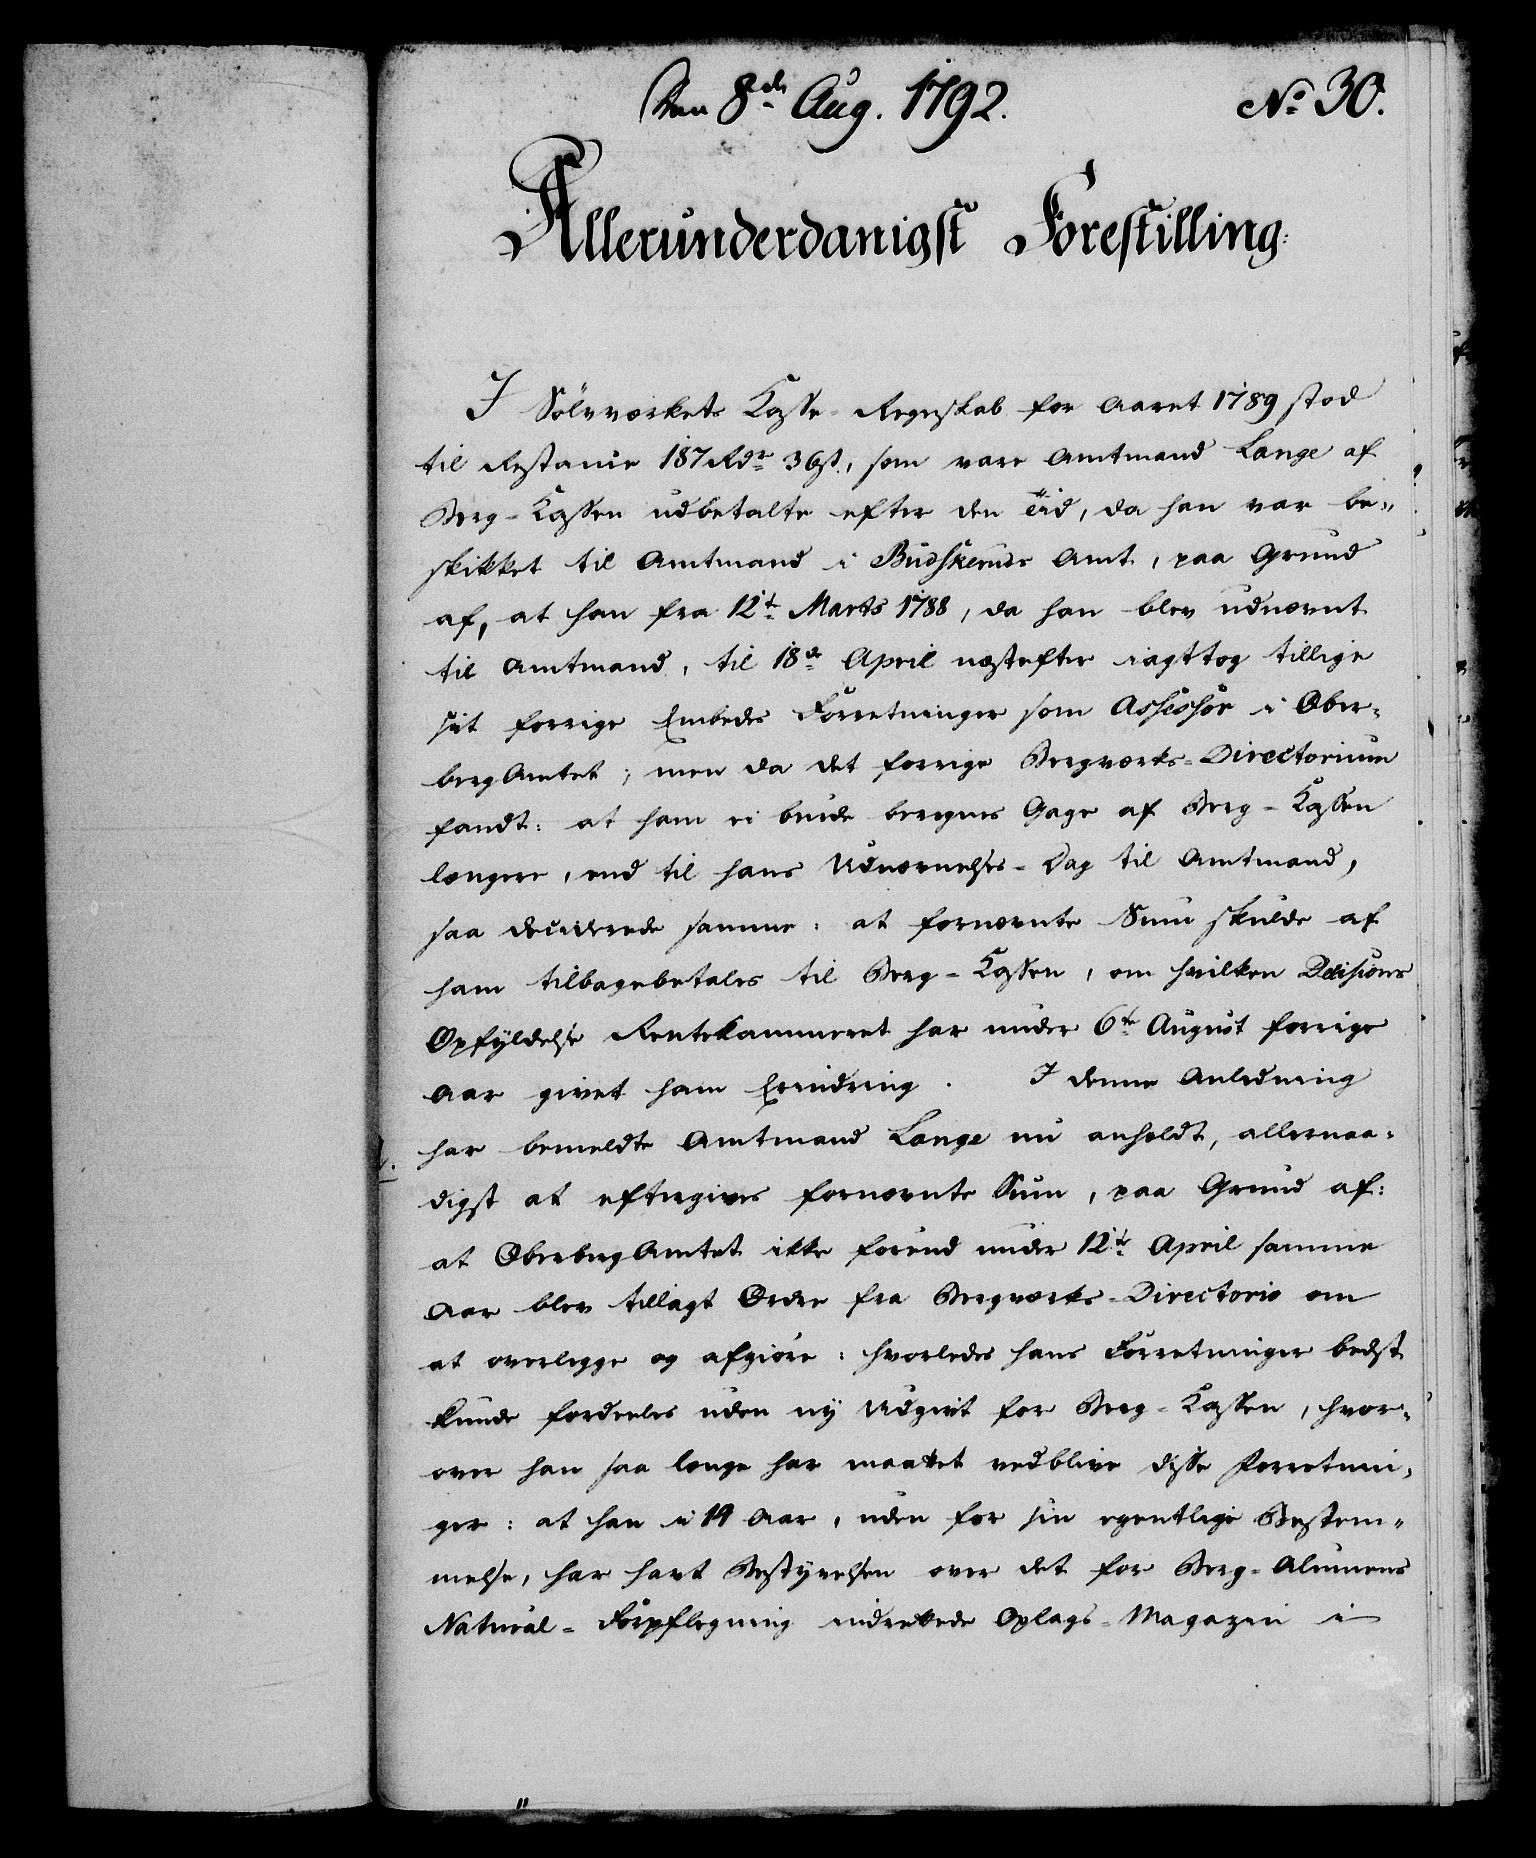 Den 8de Aug. 1792. No 30.
Allerunderdanigst Forestilling:
I Sölvverkets Casse-Regnskab for Aaret 1789 stod
til Restance 187 Rdr 36 s., som vare Amtmand Lange af
Berg-Cassen udbetalte efter den Tid, da han var be-
skikket til Amtmand i Budskeruds Amt, paa Grund
af, at han fra 12te Marts 1788, da han blev udnevnt
til Amtmand, til 18de April næstefter iagttog tillige
sit forrige Embedes Forretninger som Assessor i Ober-
bergAmtet; men da det forrige Bergverks-Directorium
fandt: at ham ei burde beregnes Gage af Berg-Cassen
længere, end til hans Udnevnelses-Dag til Amtmand,
saa deciderede samme: at fornevnte Sum skulde af
ham tilbagebetales til Berg-Cassen, om hvilken Decisions
Opfyldelse Rentekammeret har under 6te August forrige
Aar givet ham Erindring. I denne Anledning
har bemeldte Amtmand Lange nu anholdt, allernaa-
digst at eftergives fornevnte Sum, paa Grund af:
at OberbergAmtet ikke forend under 12te April samme
Aar blev tillagt Ordre fra Bergverks-Directorio om
at overlegge og afgiöre: hvorledes hans Forretninger bedst
kunde fordeeles uden ny Udgivt for Berg-Cassen, hvor-
over han saa længe har maattet vedblive disse Forretnin-
ger: at han i 14 Aar, uden for sin egentlige Bestem-
melse, har havt Bestyrelsen over det for Berg-Alumens
Natural-Forpflegning indrettede Oplags-Magazin i